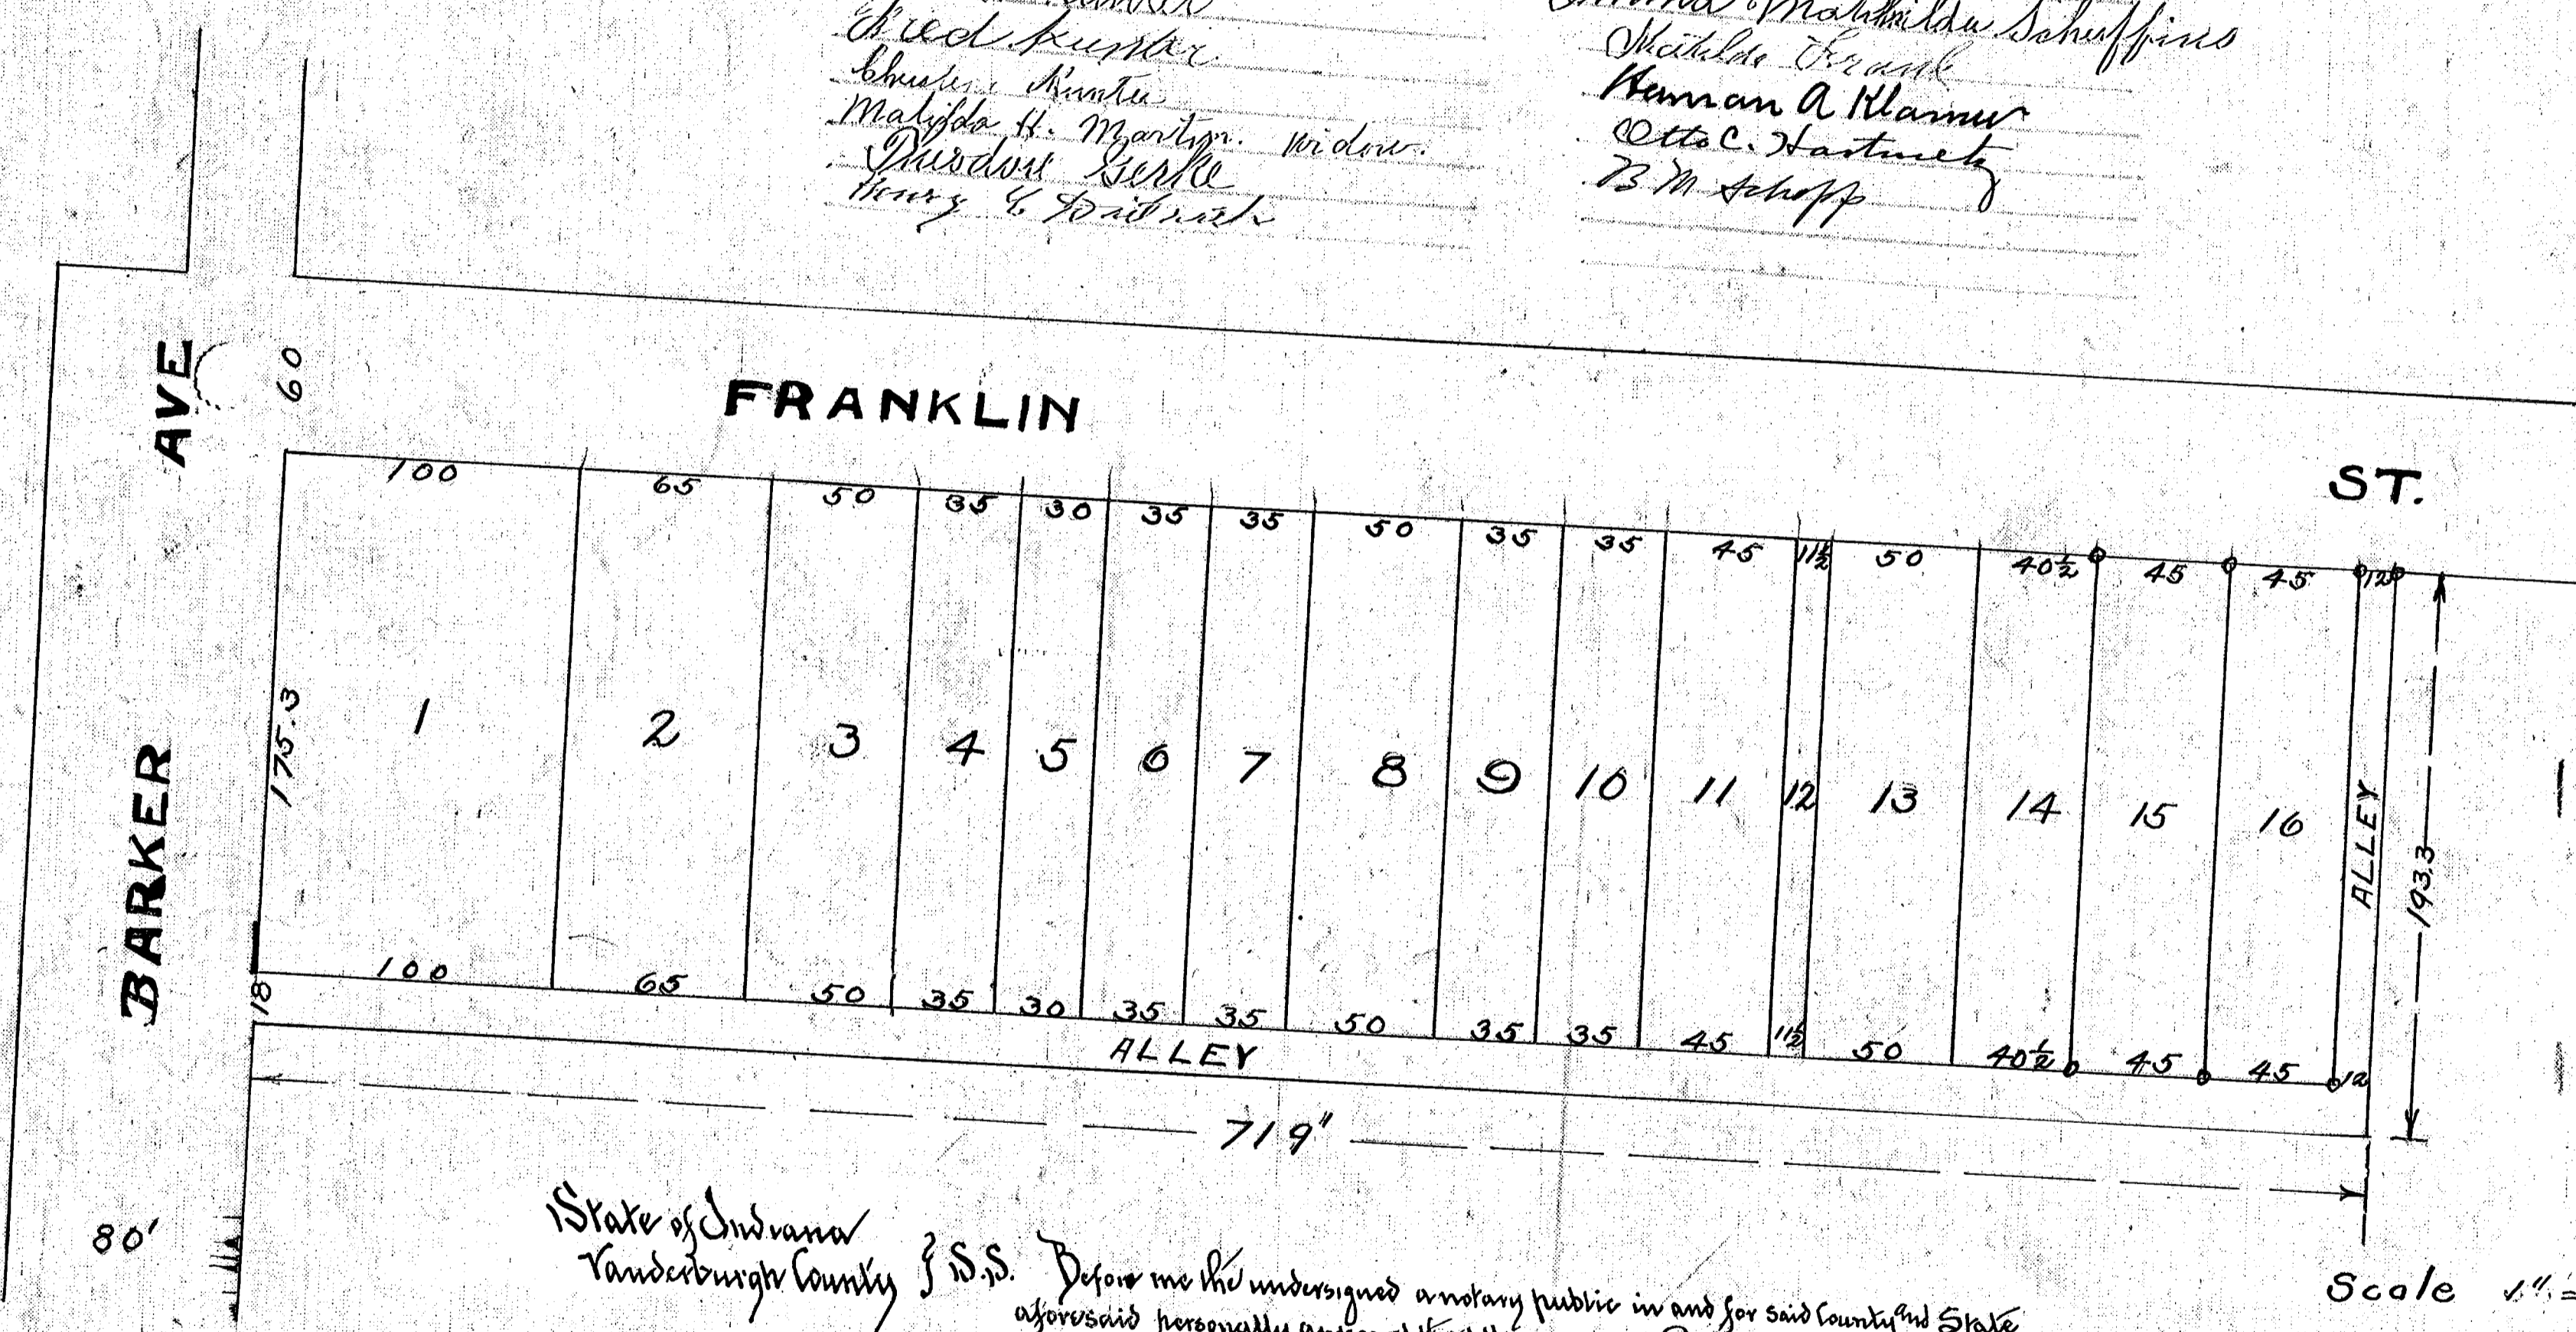 Matilda H. Martin. Widow.
Theodore Gerke
Henry
Mathilda Schuffins
Matilda Frank
Herman A Klamer
Otto C. Hartmetz
B M Schopp
BARKER AVE
60
FRANKLIN ST.
100 65 50 35 30 35 35 50 35 35 45 11½ 50 40½ 45 45 12
175.3
1 2 3 4 5 6 7 8 9 10 11 12 13 14 15 16
ALLEY
193.3
100 65 50 35 30 35 35 50 35 35 45 11½ 50 40½ 45 45 12
18
ALLEY
719"
80'
State of Indiana
Vanderburgh County } S.S. Before me the undersigned a notary public in and for said County and State
aforesaid personally
Scale 1"=